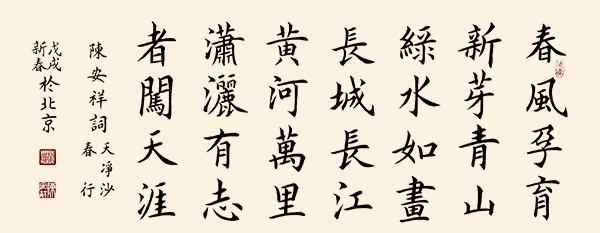 春風孕育
新芽青山
綠水如畫
長城長江
黃河萬里
瀟灑有志
者闖天涯
陳安祥詞天凈沙
春行
戊戌
新春於北京